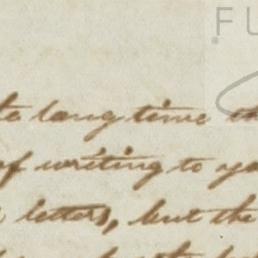 FU
to long time th
of writing to yo
letters, but the